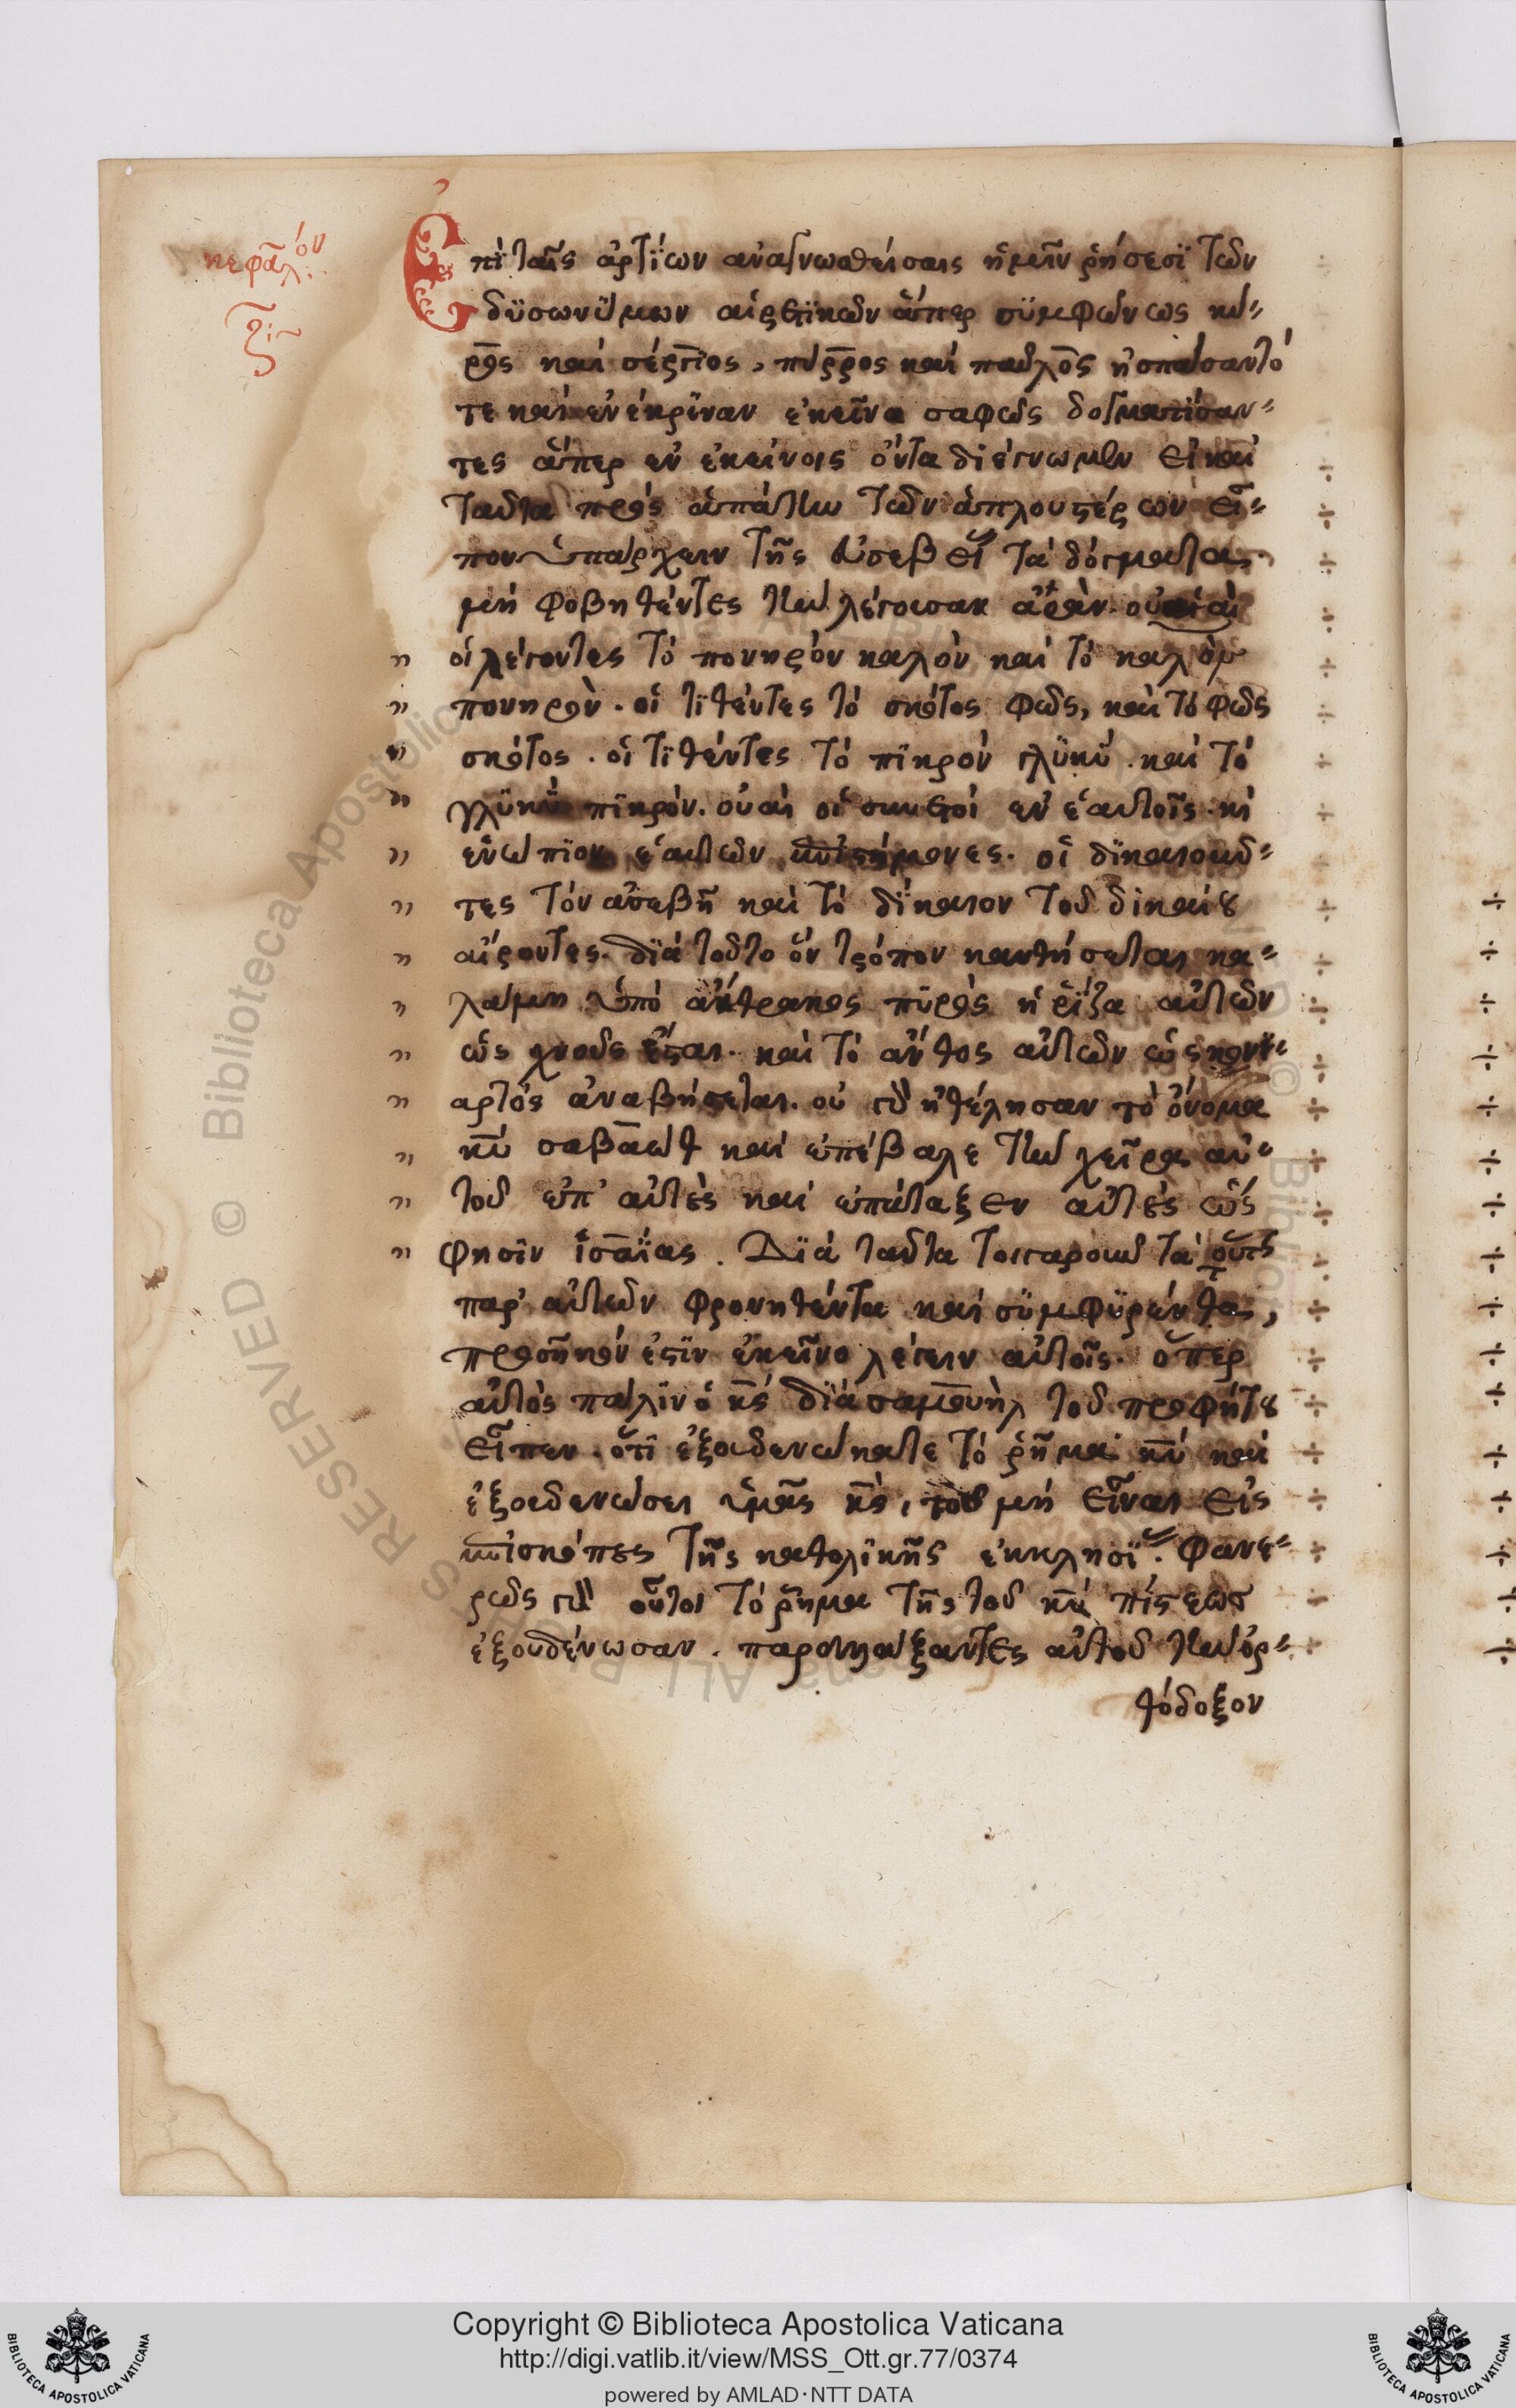 κεφάλ ον
ξι
Επὶ ταῖς ἀρτίως ἀναγνωσθείσαις ἡμῖν ῥήσεσι τῶν
δυσωνύμων αἱρετικῶν ἅπερ συμφώνως κύ-
ρος καὶ σέργιος, πύρρος καὶ παῦλος ἠσπάσαντό
τε καὶ ἐνέκριναν ἐκεῖνα σαφῶς δογματίσαν-
τες ἅπερ ἐν ἐκείνοις ὄντα διέγνωμεν εἰ καὶ
ταῦτα πρὸς ἀπάτην τῶν ἁπλουστέρων εἶ-
πον ὑπάρχειν τῆς εὐσεβεί τὰ δόγματα.
μὴ φοβηθέντες τὴν λέγουσαν ἀρὰν. οὐαὶ
οἱ λέγοντες τὸ πονηρὸν καλὸν καὶ τὸ καλὸν
πονηρὸν. οἱ τιθέντες τὸ σκότος φῶς, καὶ τὸ φῶς
σκότος. οἱ τιθέντες τὸ πικρὸν γλυκὺ. καὶ τὸ
γλυκὺ πικρόν. οὐαὶ οἱ συνετοὶ ἐν ἑαυτοῖς. κὶ
ἐνώπιον ἑαυτῶν ἐπιστήμονες. οἱ δικαιοῦν-
τες τὸν ἀσεβῆ καὶ τὸ δίκαιον τοῦ δικαίου
αἴροντες. διὰ τοῦτο ὃν τρόπον καυθήσεται κα-
λάμη ὑπὸ ἄνθρακος πυρὸς ἡ ῥίζα αὐτῶν
ὡς χνοῦς ἔσται. καὶ τὸ ἄνθος αὐτῶν ὡς κονι
αρτὸς ἀναβήσεται. οὐ γὰρ ἠθέλησαν τὸ ὄνομα
κ̅υ̅ σαβαὼθ καὶ ἐπέβαλε τὴν χεῖρα αὐ-
τοῦ ἐπ' αὐτοὺς καὶ ἐπάταξεν αὐτοὺς ὥς
φησιν ἡσαΐας. Διὰ ταῦτα τοιγαροῦν τὰ οὕτως
παρ' αὐτῶν φρονηθέντα καὶ συμφυρέντα,
προσῆκόν ἐστιν ἐκεῖνο λέγειν αὐτοῖς. ὅπερ
αὐτὸς πάλιν ὁ κ̅ς̅ διὰ σαμουὴλ τοῦ προφήτου
εἶπεν. ὅτι ἐξουδενώκατε τὸ ῥῆμα κ̅υ̅ καὶ
ἐξουδενώσει ὑμᾶς κ̅ς̅, τοῦ μὴ εἶναι εἰς
ἐπισκόπους τῆς καθολικῆς ἐκκλησί. Φανε-
ρῶς γὰρ οὗτοι τὸ ῥῆμα τῆς τοῦ κ̅υ̅ πίστεως
ἐξουδένωσαν. παραλλάξαντες αὐτοῦ τὴν ὀρ-
θόδοξον
Copyright © Biblioteca Apostolica Vaticana
http://digi.vatlib.it/view/MSS_Ott.gr.77/0374
powered by AMLAD·NTT DATA